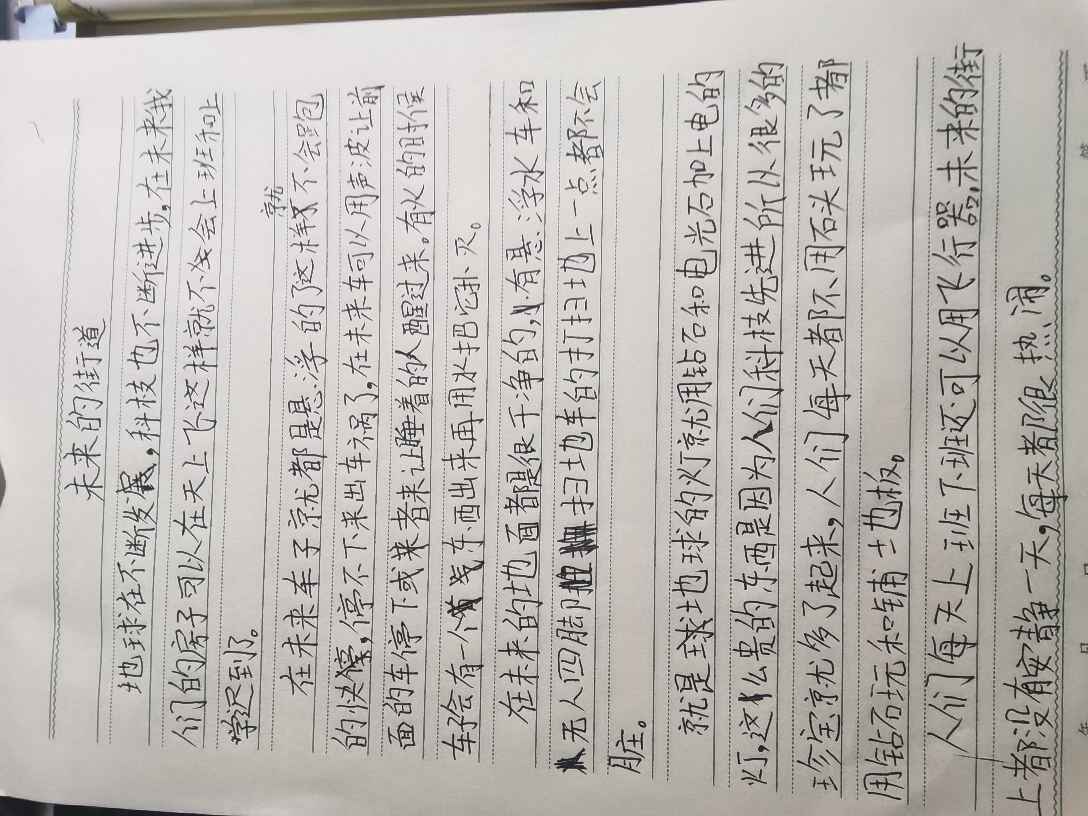 未来的街道
地球在不断发展，科技也不断进步，在未来我
们的房子可以在天上飞这样就不会上班和上
学迟到了。
就
在未来车子就都是悬浮的了这样不会跑
的快停，停不下来出车祸了，在未来车可以用声波让前
面的车停下或者来让睡着的人醒过来。有火的时候
车子会有一个东西出来再用水把它扑灭。
在未来的地面都是很干净的，有悬浮水车和
无人四脚扫地车的打扫地上一点都不会
脏。
就是球地球的灯就用钻石和电光石加上电的
灯，这么贵的东西是因为人们科技先进所以很多的
珍宝就多了起来，人们每天者不用石头玩了都
用钻石玩和铺土地板。
人们每天上班下班还可以用飞行器，未来的街
上都没有安静一天，每天都很热闹。